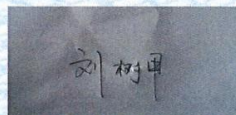 刘树甲